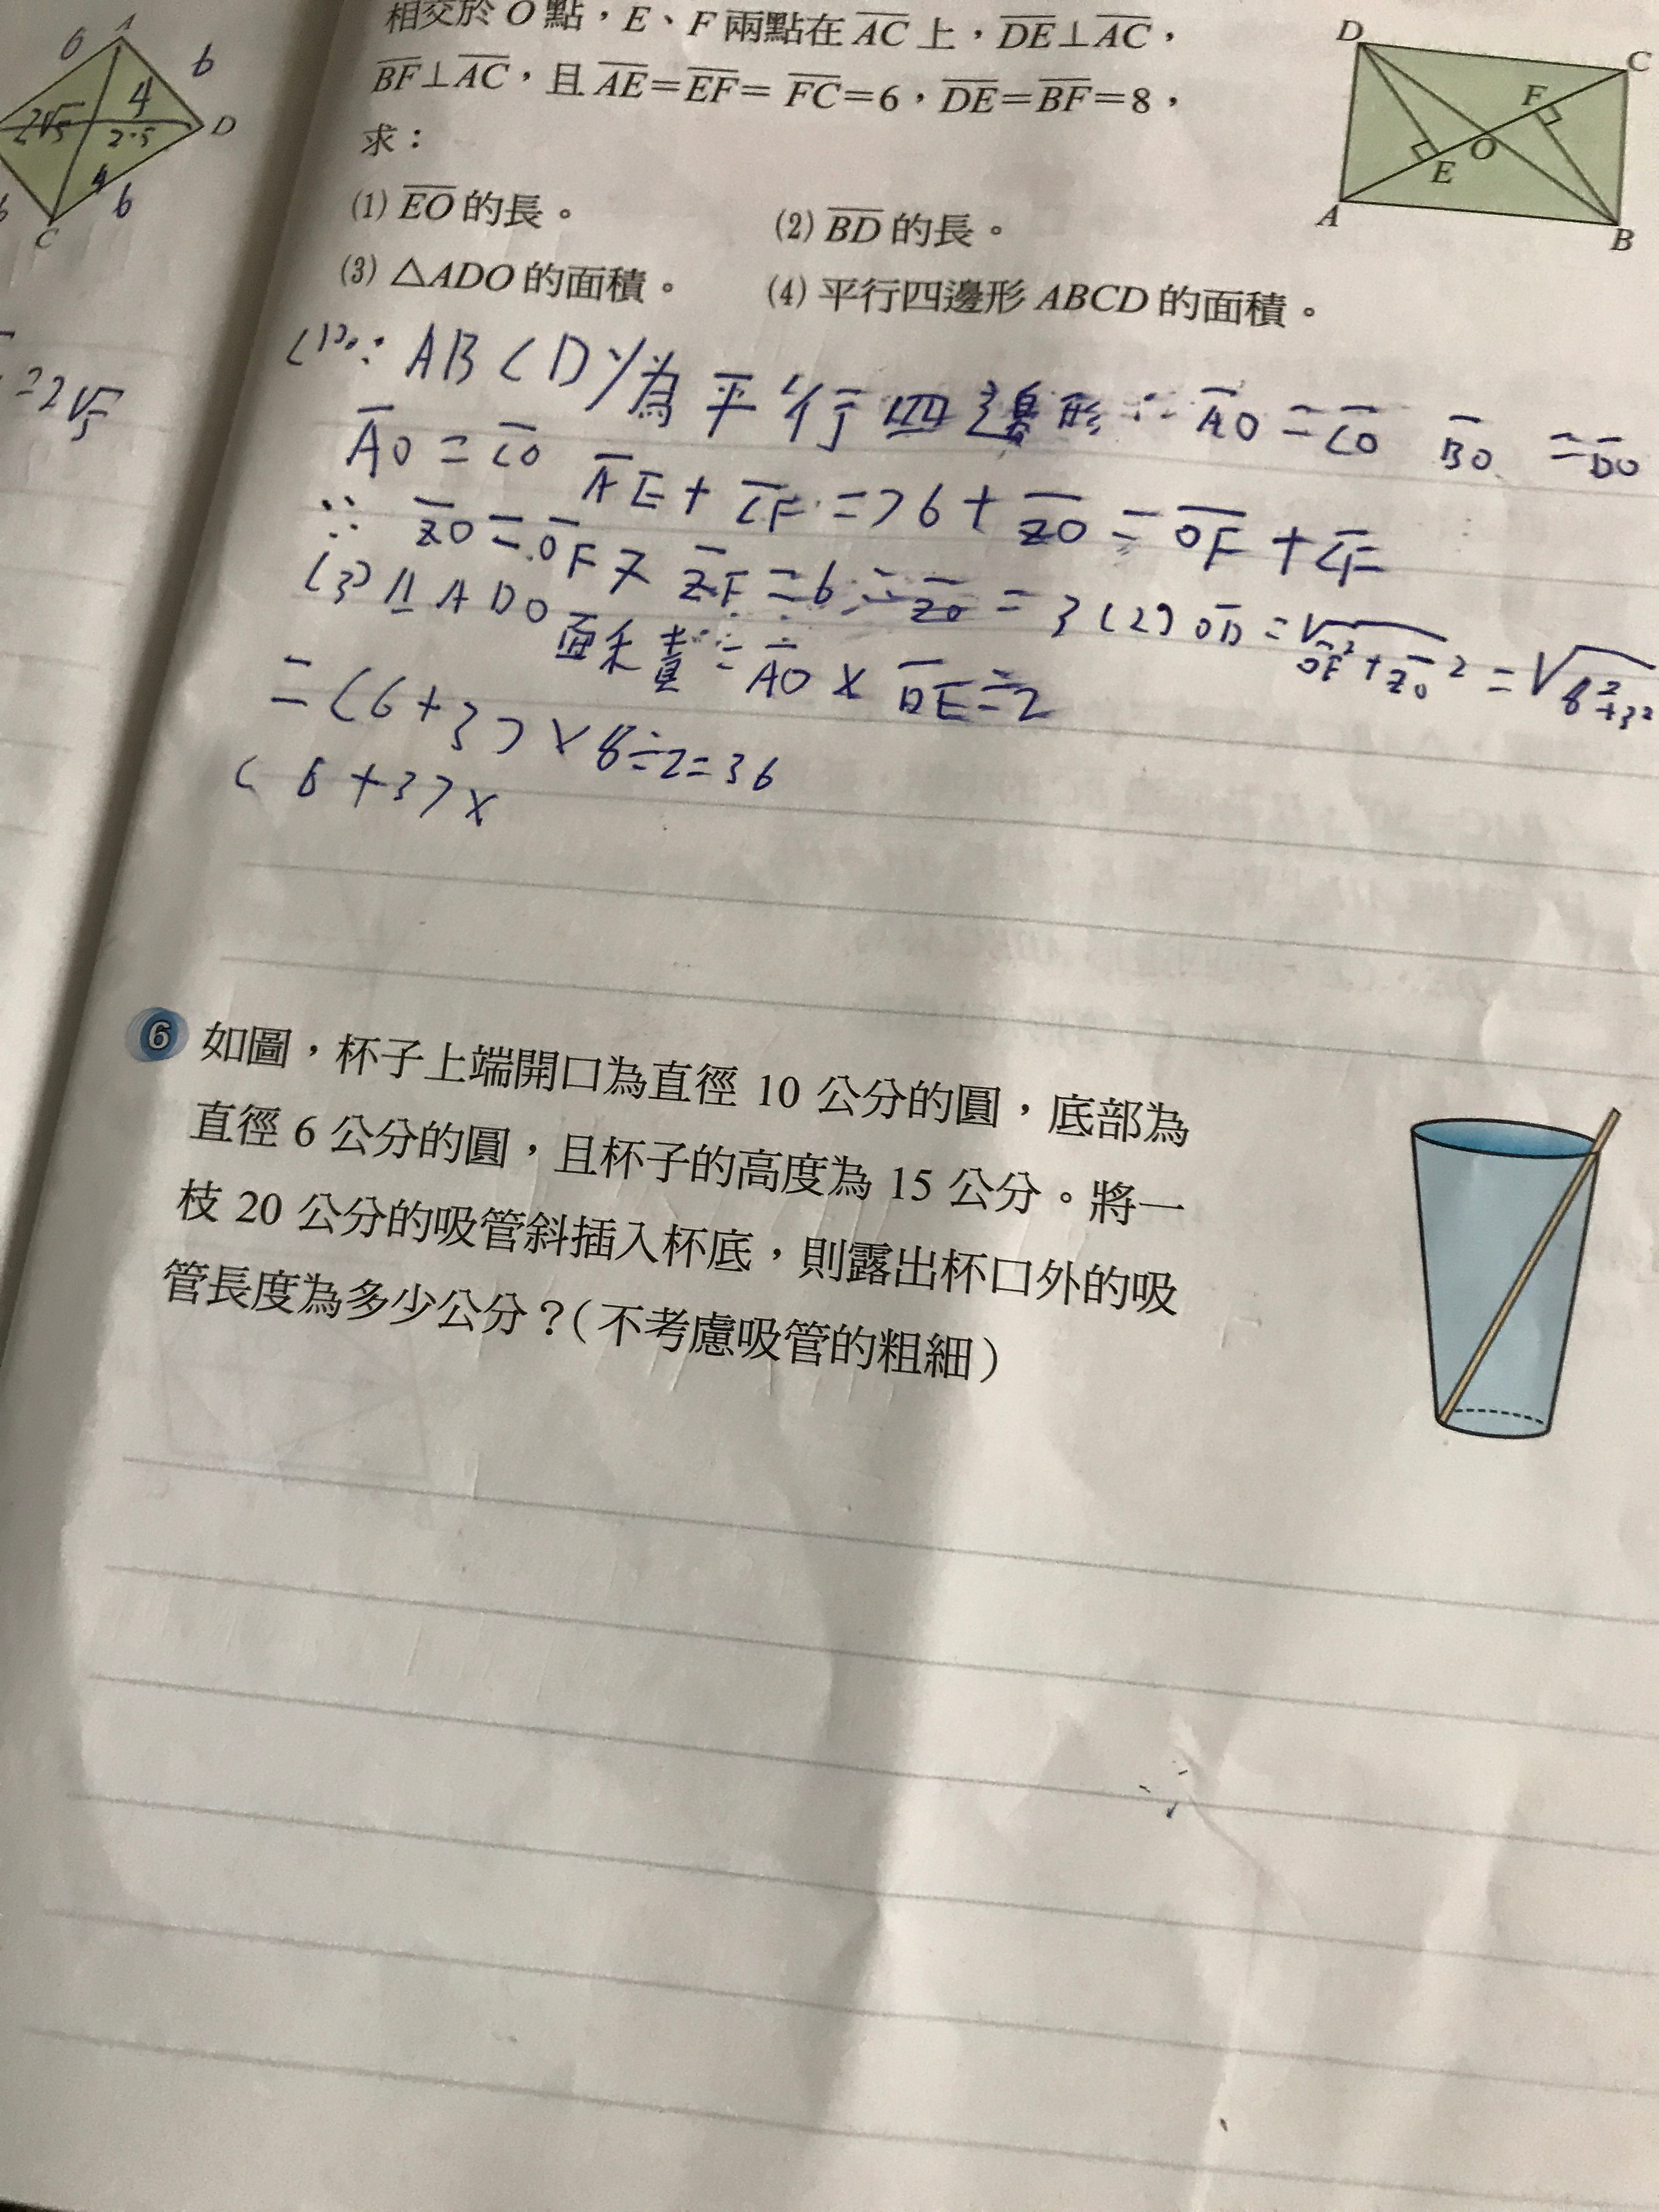 相交於 O 點，E、F 兩點在 AC 上，DE⊥AC，
BF⊥AC，且 AE＝EF＝ FC＝6，DE＝BF＝8，
求：
(1) EO 的長。
(2) BD 的長。
(3) △ADO 的面積。
(4) 平行四邊形 ABCD 的面積。
D
C
F
O
E
A
B
6
A
b
4
2√5
2·5
D
4
6
C
=2√5
(1)∵ABCD為平行四邊形∴AO=CO BO=DO
AO=CO AE+CF=>6+EO=OF+CF
∴EO=OF又EF=6∴EO=3 (2) OD=√
(3)△ADO面積=AO×DE÷2
=√8²+3²
=(6+3)×8÷2=36
(6+3)×
6 如圖，杯子上端開口為直徑 10 公分的圓，底部為
直徑 6 公分的圓，且杯子的高度為 15 公分。將一
枝 20 公分的吸管斜插入杯底，則露出杯口外的吸
管長度為多少公分？（不考慮吸管的粗細）